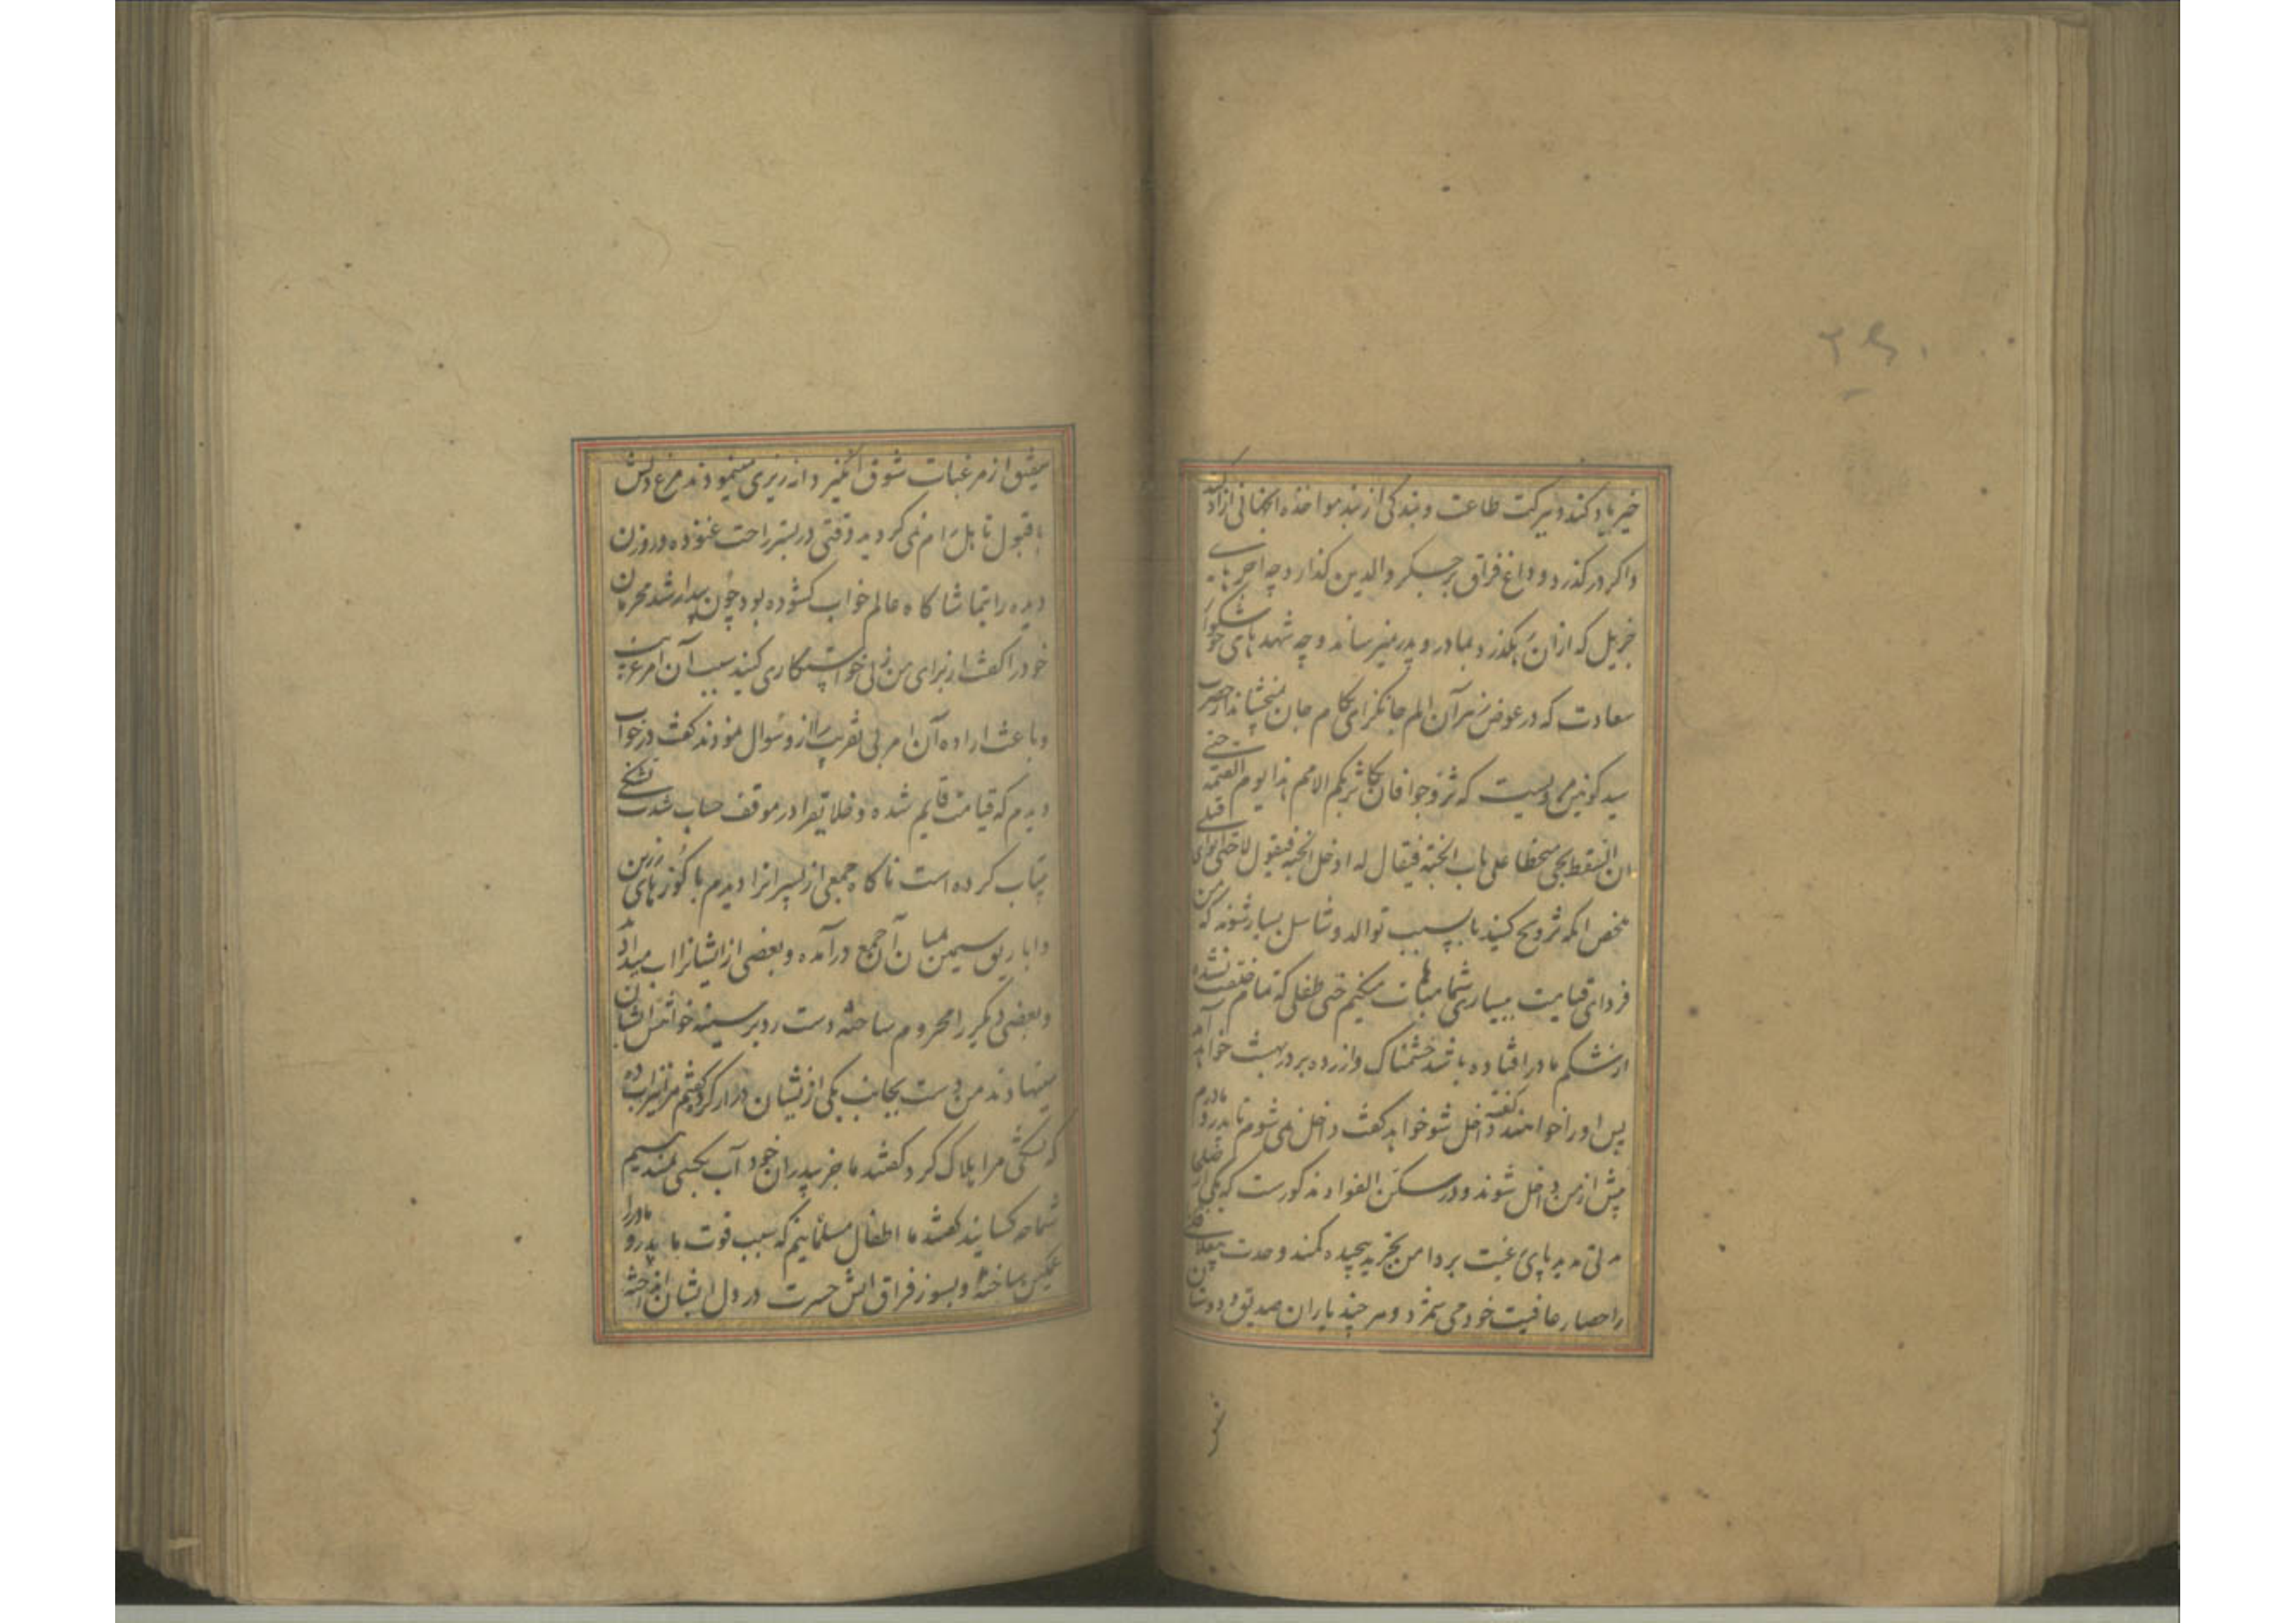 ۲۶۰
خیر یاد کند و ببرکت طاعت و بندگی از بند مواخذه انجهانی ازاد کند
و اگر در گذرد و داغ فراق بر جگر والدین گذارد چه اجرهای
جزیل که ازان بگذرد و بمادر و پدر میرساند و چه شهدهای خوشگوار
سعادت که در عوض زهر آن الم جانگزای بکام جان میچشاند از حضرت
سید کونین مرویست که تزوجوا فان مکاثر بکم الامم غدا یوم القیمه حتی
ان السقط یجی محبنطا علی باب الجنة فیقال له ادخل الجنة فیقول لا حتی ابوای قبلی
ملخص انکه تزویج کنید تا بسبب توالد و تناسل بسیار شوند که من
فردای قیامت ببسیاری شما مباهات میکنم حتی طفلی که تمام خلقت نشده
از شکم مادر افتاده باشد خشمناک و ازرده بر در بهشت خواهد آمد
پس او را خواهند گفت داخل شو خواهد گفت داخل نمی شوم تا پدر و مادرم
پیش از من داخل شوند و در مسکن الفواد مذکورست که یکی از صلحا
مدتی مدید پای رغبت بر دامن تجرید پیچیده کمند وحدت
را حصار عافیت خود می شمرد و هر چند یاران صدیق و دوستان
شفیق از مرغبات شوق انگیز دانه ریزی مینمودند مرغ دلش
با قبول تاهل رام نمی گردید وقتی در بستر راحت غنوده و روزن
دیده را بتماشاگاه عالم خواب گشوده بود چون بیدار شد محرمان
خود را گفت از برای من زنی خواستگاری کنید سبب آن امر غریب
و باعث اراده آن امر بی تقریب را از و سوال نمودند گفت در خواب
دیدم که قیامت قایم شده و خلایق را در موقف حساب شدت تشنگی
بیتاب کرده است ناگاه جمعی از پسرانرا دیدم با کوزهای زرین
و اباریق سیمین میان آن جمع درآمده و بعضی از ایشانرا اب میدادند
و بعضی دیگر را محروم ساخته دست رد بر سینه خواهش ایشان
مینهادند من دست بجانب یکی از ایشان دراز کرده گفتم مرا نیز اب ده
که تشنگی مرا هلاک کرد گفتند ما جز پدران خود آب بکسی نمیدهیم
شما چه کسانید گفتند ما اطفال مسلمانیم که بسبب فوت ما پدر و مادر را
غمگین ساخته و بسوز فراق اتش حسرت در دل ایشان افروخته